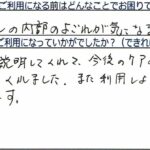 ご利用になる前はどんなことでお困りで
ンの内部のよごれが気にな
ご利用になっていかがでしたか?(できれ
説明してくれて、今後のケア
くれました。また利用しよ
す。